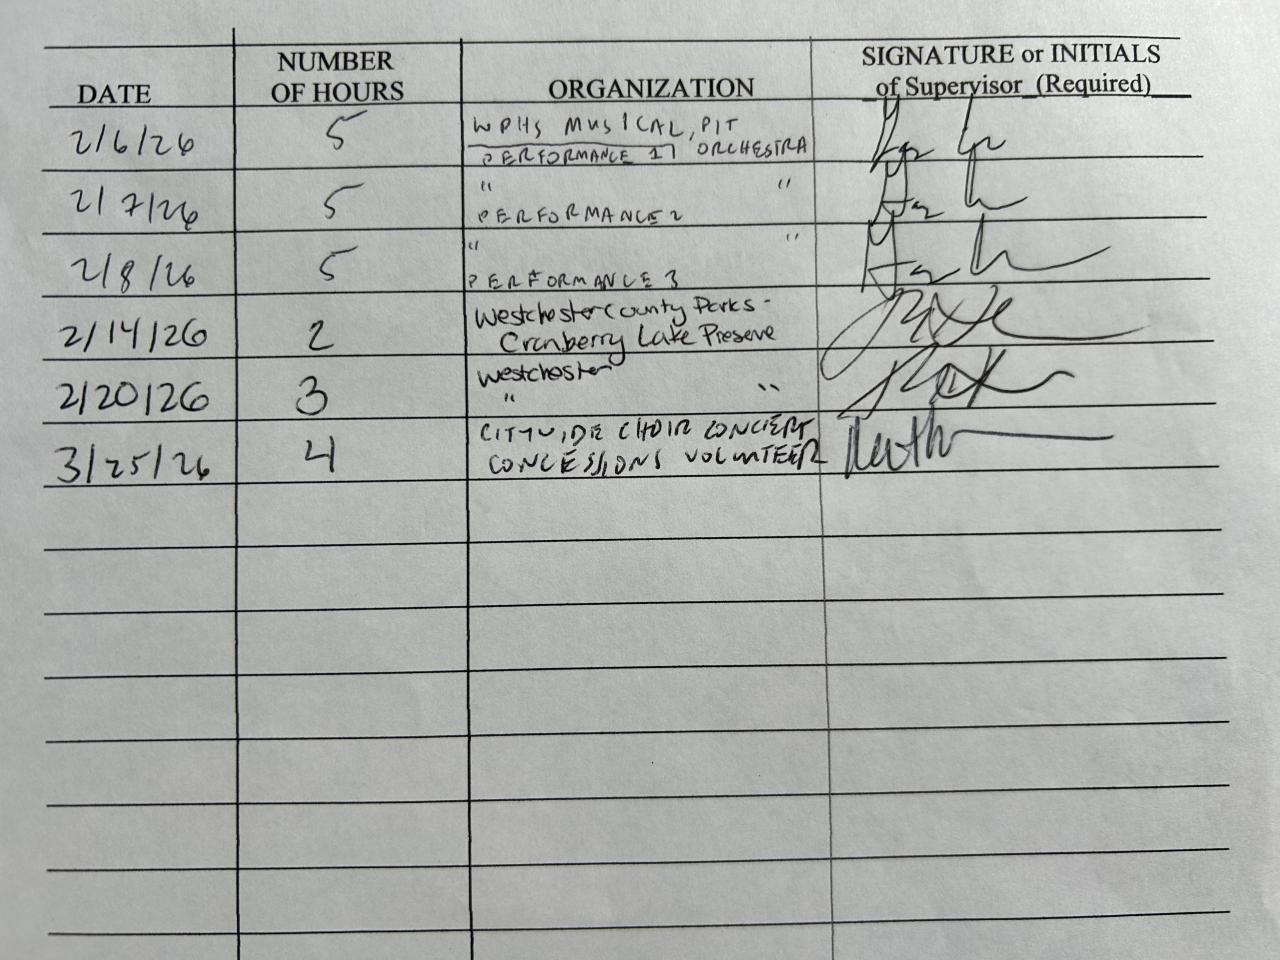 DATE NUMBER OF HOURS ORGANIZATION SIGNATURE or INITIALS of Supervisor (Required)
2/6/26 5 WPHS MUSICAL, PIT
PERFORMANCE 1 ORCHESTRA
2/7/26 5 " "
PERFORMANCE 2
2/8/26 5 " "
PERFORMANCE 3
2/14/26 2 Westchester County Parks -
Cranberry Lake Preserve
2/20/26 3 Westchester
" "
3/25/26 4 CITYWIDE CHOIR CONCERT
CONCESSIONS VOLUNTEER